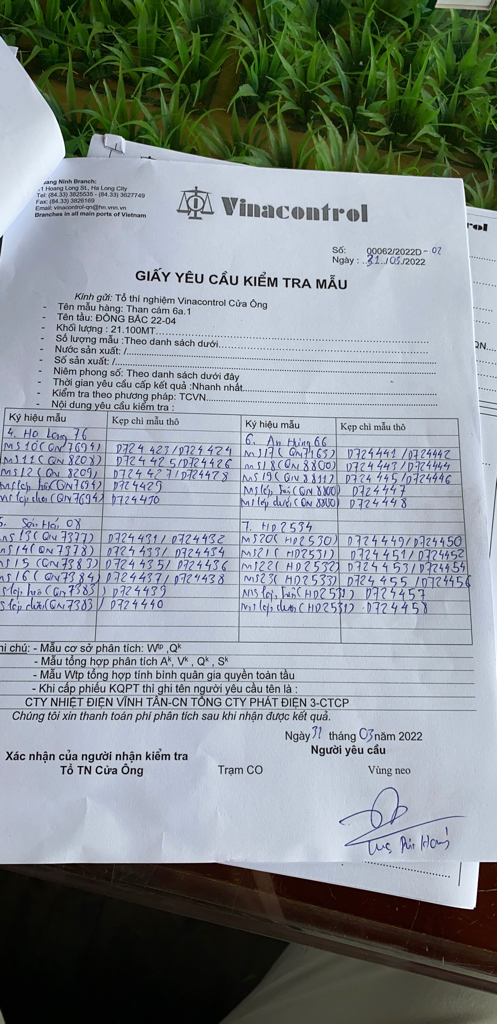 ang Ninh Branch:
1 Hoang Long St., Ha Long City
Tel: (84.33) 3825535 - (84.33) 3627749
Fax: (84.33) 3826169
Email: vinacontrol-qn@hn.vnn.vn
Branches in all main ports of Vietnam
Vinacontrol
rol
Số: 00062/2022D - 02
Ngày : 31/03/2022
GIẤY YÊU CẦU KIỂM TRA MẪU
Kính gửi: Tổ thí nghiệm Vinacontrol Cửa Ông
- Tên mẫu hàng: Than cám 6a.1
- Tên tàu: ĐÔNG BẮC 22-04
- Khối lượng : 21.100MT
- Số lượng mẫu :Theo danh sách dưới
- Nước sản xuất: /
- Số sản xuất: /
- Niêm phong số: Theo danh sách dưới đây
- Thời gian yêu cầu cấp kết quả :Nhanh nhất
- Kiểm tra theo phương pháp: TCVN
- Nội dung yêu cầu kiểm tra :
Ký hiệu mẫu Kẹp chì mẫu thô Ký hiệu mẫu Kẹp chì mẫu thô
4. Hạ Long 76 6. An Hưng 66
MS10 (QN7694) D724423/D724424 MS17 (QN7165) D724441/D724442
MS11 (QN 8203) D724425/D724426 MS18 (QN8800) D724443/D724444
MS12 (QN 8209) D724427/D724428 MS19 (QN8811) D724445/D724446
MS lớp trên (QN7694) D724429 MS lớp trên (QN8800) D724447
MS lớp dưới (QN7694) D724430 MS lớp dưới (QN8800) D724448
08 7. HD2534
MS13 (QN7377) D724431/D724432 MS20 (HD2530) D724449/D724450
MS14 (QN7378) D724433/D724434 MS21 (HD2531) D724451/D724452
MS15 (QN7383) D724435/D724436 MS22 (HD2532) D724453/D724454
MS16 (QN7384) D724437/D724438 MS23 (HD2533) D724455/D724456
MS lớp trên (QN7383) D724439 MS lớp trên (HD2531) D724457
MS lớp dưới (QN7383) D724440 MS lớp dưới (HD2531) D724458
hi chú: - Mẫu cơ sở phân tích: Wtp ,Qk
- Mẫu tổng hợp phân tích Ak, Vk , Qk , Sk
- Mẫu Wtp tổng hợp tính bình quân gia quyền toàn tầu
- Khi cấp phiếu KQPT thì ghi tên người yêu cầu tên là :
CTY NHIỆT ĐIỆN VĨNH TÂN-CN TỔNG CTY PHÁT ĐIỆN 3-CTCP
Chúng tôi xin thanh toán phí phân tích sau khi nhận được kết quả.
Ngày 31 tháng 03 năm 2022
Xác nhận của người nhận kiểm tra Người yêu cầu
Tổ TN Cửa Ông Trạm CO Vùng neo